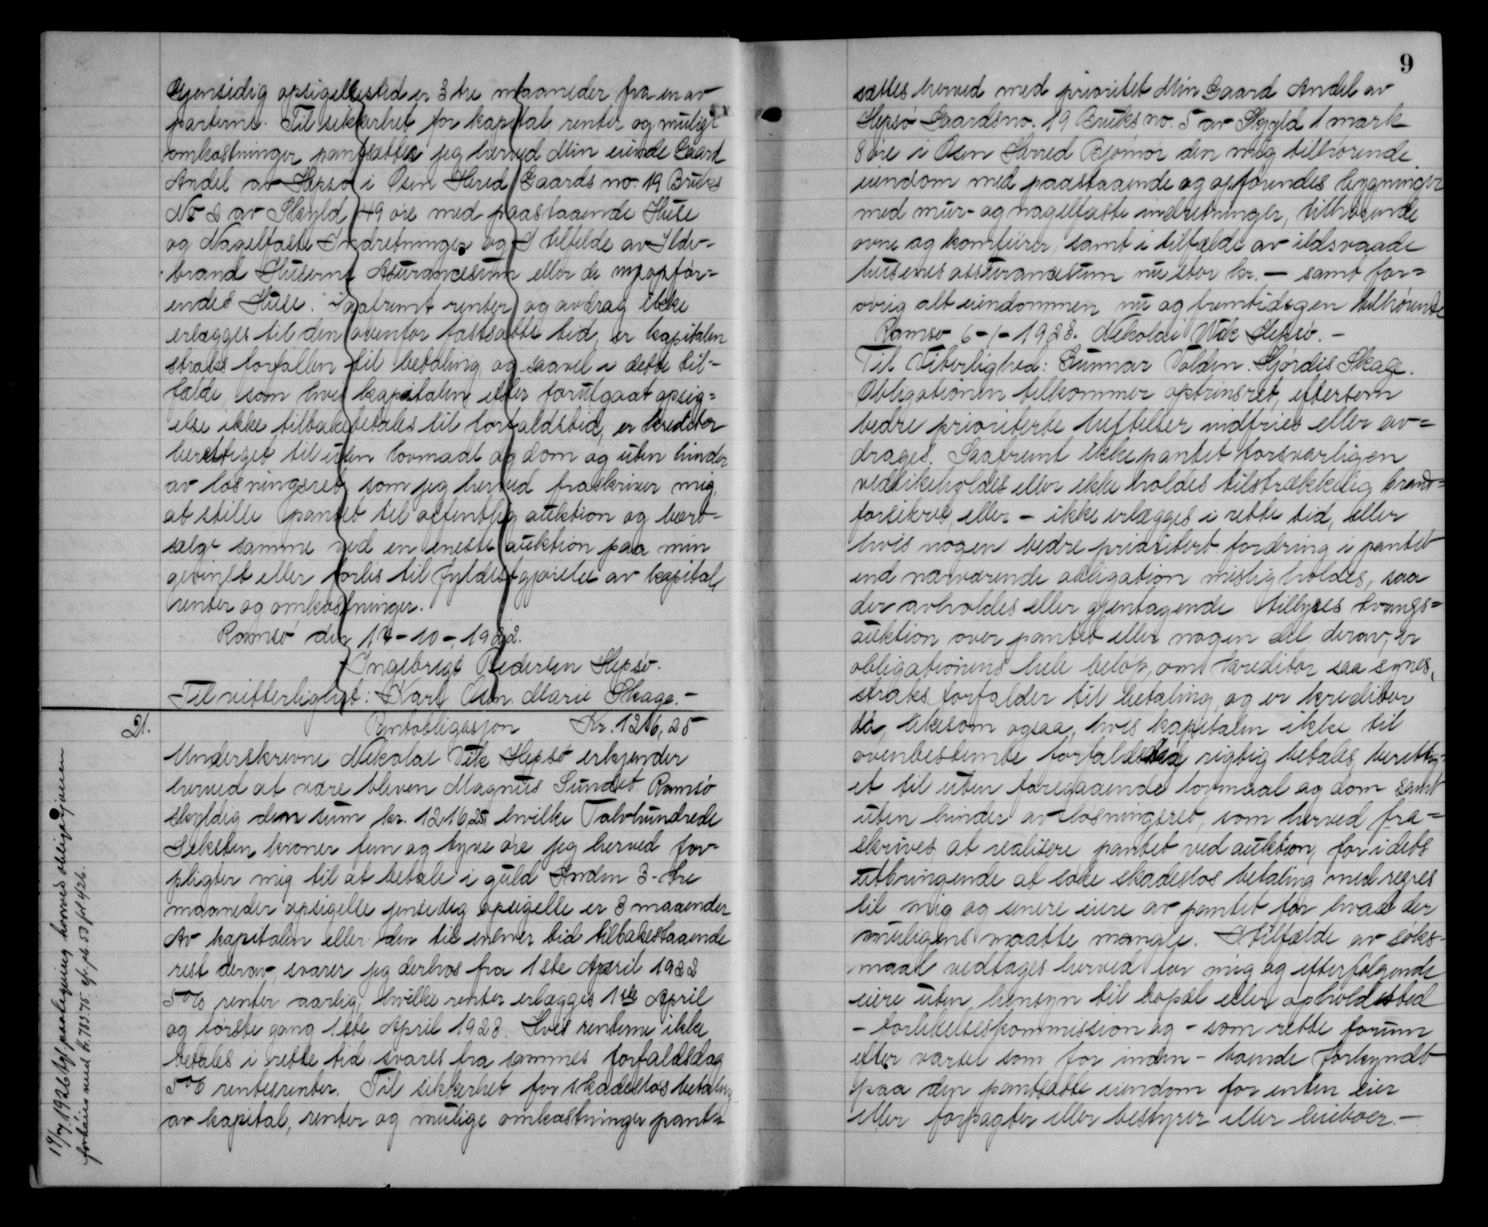 Gjensidig opsigelsestid er 3 tre maaneder fra en av
parterne. Til sikkerhet for kapital renter og muligt
omkostninger pantsætter jeg herved Min eiende Gaard
Andel av Hepsø i Osen Hered Gaards no. 19 Bruks
No 2 av Skyld 49 øre med paastaaende Huse
og Nagelfaste Indretninger og I tilfelde av Ilds-
brand Husernes Asuranesum eller de nyopfør=
endes Huse. Saafremt renter og avdrag ikke
erlægges til den ovenfor fastsatte tid, er kapitalen
straks forfallen til betaling og saavel i dette til=
fælde, som hvis kapitalen efter forutgaat opsig=
else ikke tilbakebetales til forfaldstid, er kreditor
berettiget til uten lovmaal og dom og uten hinder
av løsningsret, som jeg herved fraskriver mig,
at stille pantet til offentlig auktion og bort-
sælge samme ved en eneste auktion paa min
gevinst eller forlis til fyldestgjørelse av kapital,
renter og omkostninger.
Ramsø den 14-10-1922.
Ingebrigt Pedersen Hepsø.
Til vitterlighet: Karl Osen Marie Skage. -
21. Pantobligasjon Kr. 1216,25
Underskrevne Nikolai Vik Hepsø erkjender
herved at være bleven Magnus Sundet Ramsø
skyldig den sum kr. 1216,25 hvilke Tolvhundrede
Seksten kroner fem og tyve øre jeg herved for-
pligter mig til at betale i guld Anden 3-tre
maaneder opsigelse jensedig opsigelse er 3 maaender
Av kapitalen eller den til enhver tid tilbakestaaende
rest derav, svarer jeg derhos fra 1ste April 1922
5 % renter aarlig, hvilke renter erlægges 1ste April
og første gang 1ste April 1923. Hvis renterne ikke
betales i rette tid svares fra sammes forfaldsdag
5 % rentesrenter. Til sikkerhet for skadesløs betaling
av kapital, renter og mulige omkostninger pant=
19/7 1926 tgl. paategning herved obligasjonen
forhøies med kr. 783,75.
9
sættes herved med prioritet Min Gaard Andel av
Hepsø Gaardsno. 19 Bruksno. 5 av Skyld 1 mark
8 øre i Osen Herred Bjørnør den mig tilhørende
eiendom med paastaaende og opførendes bygninger
med mur- og nagelfaste indretninger, tilhørende
ovne og komfurer, samt i tilfælde av ildsvaade
husenes assurancesum nu stor kr. — samt for=
øvrig alt eiendommen nu og fremtidigen tilhørende
Ramsø 6-1-1923. Nikolai Vik Hepsø. -
Til Viterlighed: Gunnar Volden. Hjørdis Skage.
Obligationen tilkommer optrinsret, eftersom
bedre prioriterte heftelser indfries eller av=
drages. Saafremt ikke pantet forsvarligen
vedlikeholdes eller ikke holdes tilstrækkelig brand=
forsikret, eller - ikke erlægges i rette tid, eller
hvis nogen bedre prioritert fordring i pantet
end nærværende obligation misligholdes, saa
der avholdes eller gjentagende tillyses tvangs=
auktion over pantet eller nogen del derav, er
obligationens hele beløp, om kreditor saa synes,
straks forfalder til betaling, og er kreditor
da, likesom ogsaa, hvis kapitalen ikke til
ovenbestemte forfaldsdag rigtig betales, berettig=
et til uten foregaaende lovmaal og dom samt
uten hinder av løsningsret, som herved fra=
skrives at realisere pantet ved auktion, for i dets
utbringende at søke skadesløs betaling med regres
til mig og senere eiere av pantet for hvad der
muligens maatte mangle. I tilfælde av søks-
maal vedtages herved for mig og efterfølgende
eiere uten hensyn til bopæl eller opholdssted
- forlikelseskommission og - som rette forum
efter varsel som for inden - boende forkyndt
paa den pantsatte eiendom for enten eier
eller forpagter eller bestyrer eller leieboer. —